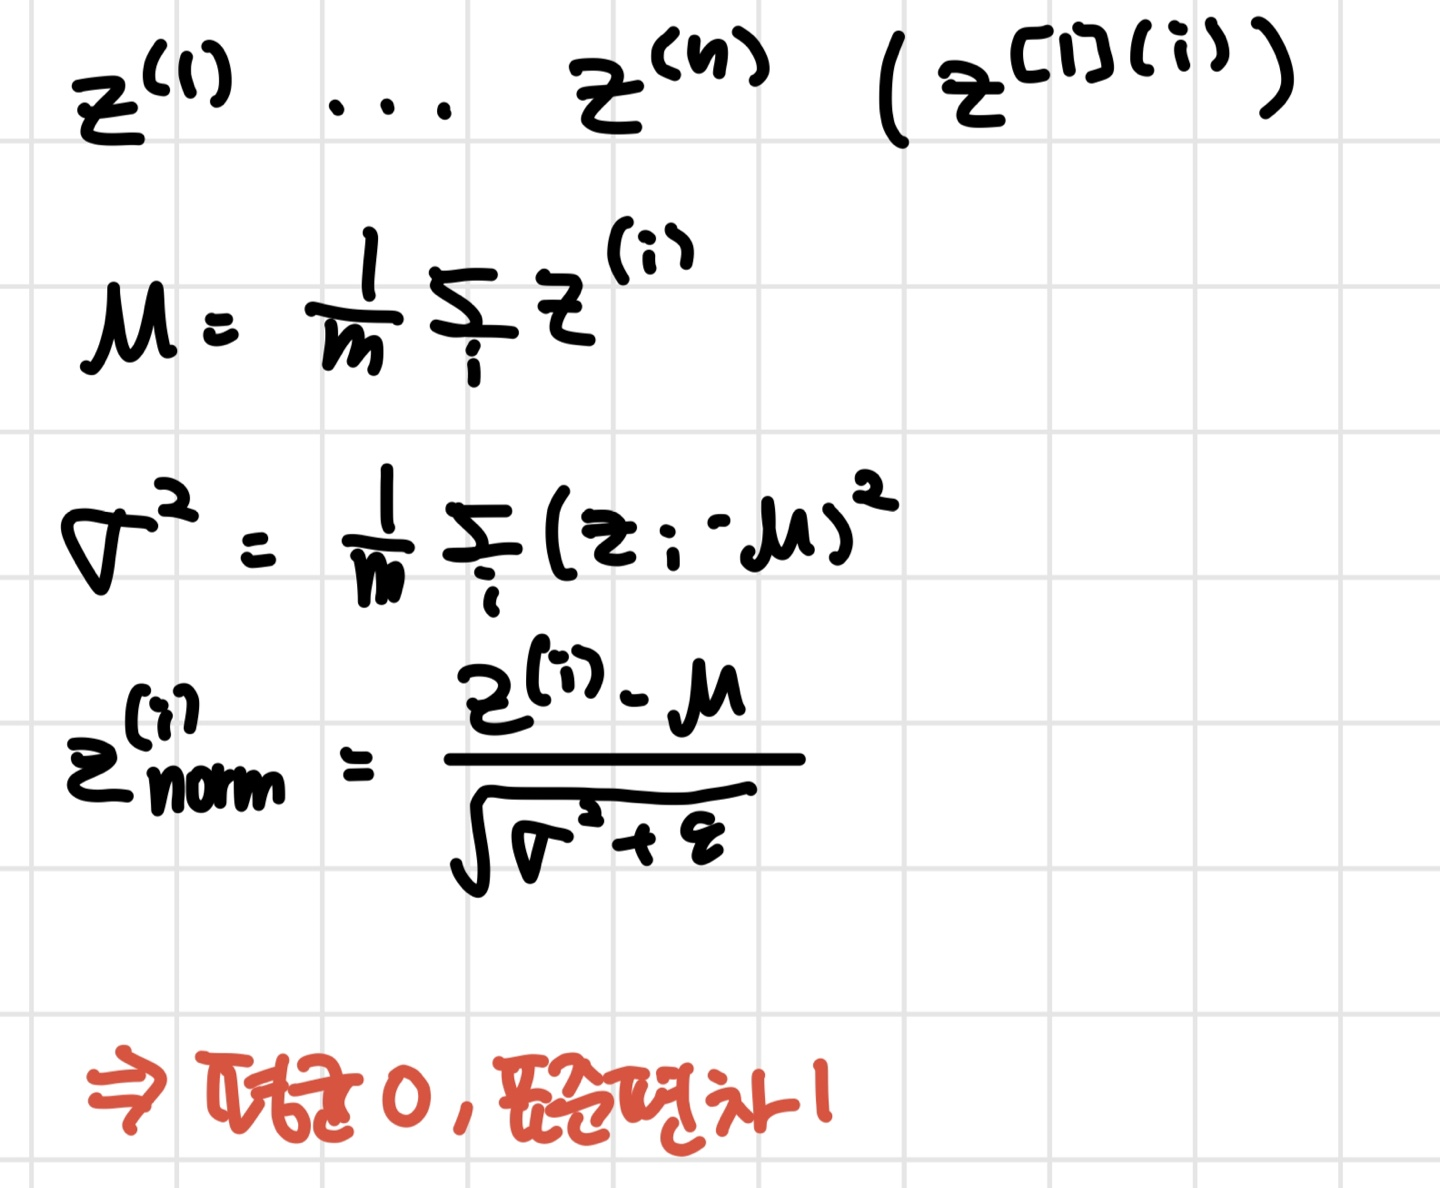 z^(1) ... z^(n) (z^[1](i))
μ = 1/m Σ_i z^(i)
σ² = 1/m Σ_i (z_i - μ)²
z^(i)_norm = (z^(i) - μ) / √(σ² + ε)
⇒ 평균 0, 표준편차 1